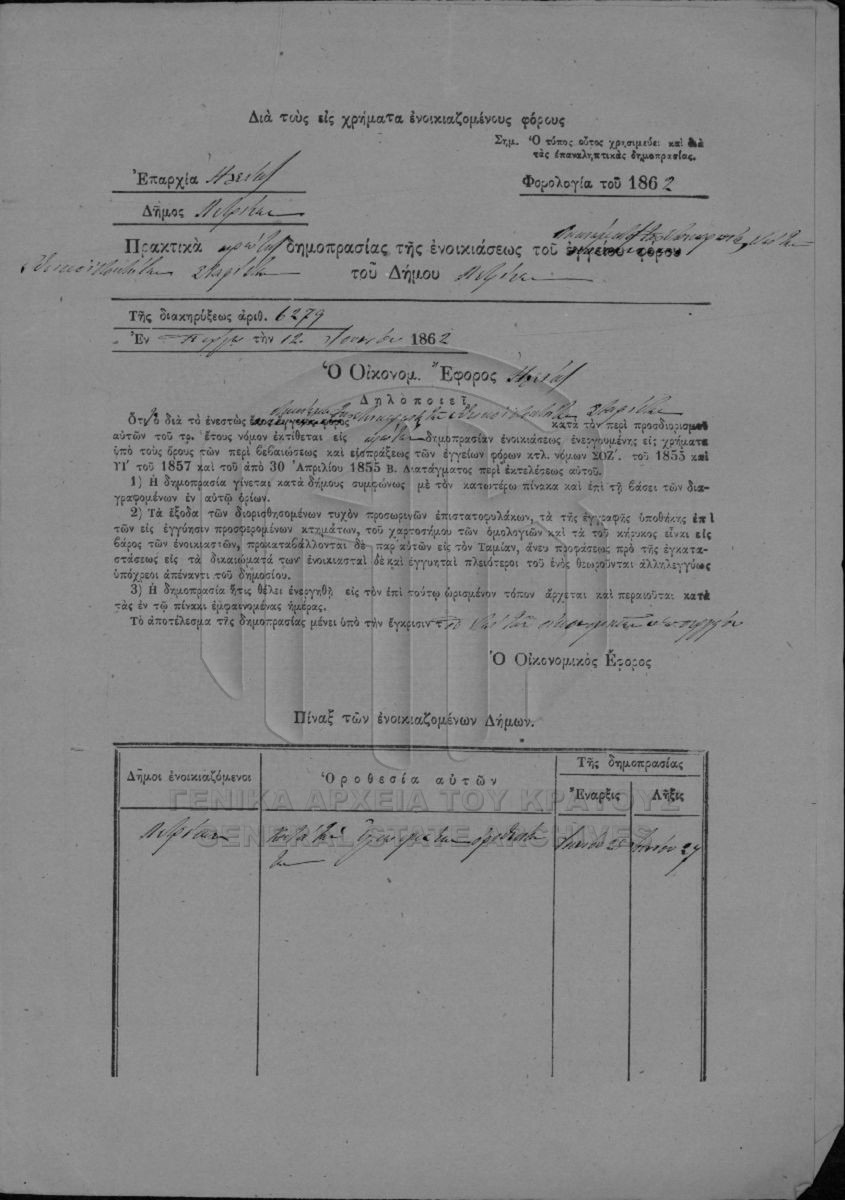 Διὰ τοὺς εἰς χρήματα ἐνοικιαζομένους φόρους
Σημ. Ὁ τύπος οὗτος χρησιμεύει καὶ διὰ
τὰς ἐπαναληπτικὰς δημοπρασίας.
Ἐπαρχία Ἠλείας
Φορολογία τοῦ 1862
Δῆμος
Πρακτικὰ πρώτης δημοπρασίας τῆς ἐνοικιάσεως τοῦ ἐγγείου φόρου
τοῦ Δήμου
Τῆς διακηρύξεως ἀριθ. 6279
Ἐν Πύργῳ τὴν 12 Ἰουνίου 1862
Ὁ Οἰκονομ. Ἔφορος Ἠλείας
Δηλοποιεῖ
Ὅτι ὁ διὰ τὸ ἐνεστὼς ἔτος ἔγγειος φόρος κατὰ τὸν περὶ προσδιορισμοῦ
αὐτῶν τοῦ τρ. ἔτους νόμον ἐκτίθεται εἰς πρώτην δημοπρασίαν ἐνοικιάσεως ἐνεργουμένης εἰς χρήματα
ὑπὸ τοὺς ὅρους τῶν περὶ βεβαιώσεως καὶ εἰσπράξεως τῶν ἐγγείων φόρων κτλ. νόμων ΣΟΖ΄. τοῦ 1855 καὶ
ΥΓ΄ τοῦ 1857 καὶ τοῦ ἀπὸ 30 Ἀπριλίου 1855 Β. Διατάγματος περὶ ἐκτελέσεως αὐτοῦ.
1) Ἡ δημοπρασία γίνεται κατὰ δήμους συμφώνως μὲ τὸν κατωτέρω πίνακα καὶ ἐπὶ τῇ βάσει τῶν δια-
γραφομένων ἐν αὐτῷ ὁρίων.
2) Τὰ ἔξοδα τῶν διορισθησομένων τυχὸν προσωρινῶν ἐπιστατοφυλάκων, τὰ τῆς ἐγγραφῆς ὑποθήκης ἐπὶ
τῶν εἰς ἐγγύησιν προσφερομένων κτημάτων, τοῦ χαρτοσήμου τῶν ὁμολογιῶν καὶ τὰ τοῦ κήρυκος εἶναι εἰς
βάρος τῶν ἐνοικιαστῶν, προκαταβάλλονται δὲ παρ᾿ αὐτῶν εἰς τὸν Ταμίαν, ἄνευ προφάσεως πρὸ τῆς ἐγκατα-
στάσεως εἰς τὰ δικαιώματά των ἐνοικιασταὶ δὲ καὶ ἐγγυηταὶ πλειότεροι τοῦ ἑνὸς θεωροῦνται ἀλληλεγγύως
ὑπόχρεοι ἀπέναντι τοῦ δημοσίου.
3) Ἡ δημοπρασία ἥτις θέλει ἐνεργηθῆ εἰς τὸν ἐπὶ τούτῳ ὡρισμένον τόπον ἄρχεται καὶ περαιοῦται κατὰ
τὰς ἐν τῷ πίνακι ἐμφαινομένας ἡμέρας.
Τὸ ἀποτέλεσμα τῆς δημοπρασίας μένει ὑπὸ τὴν ἔγκρισιν τοῦ ἐπὶ τῶν οἰκονομικῶν ὑπουργείου
Ὁ Οἰκονομικὸς Ἔφορος
Πίναξ τῶν ἐνοικιαζομένων Δήμων.
Δῆμοι ἐνοικιαζόμενοι
Ὁροθεσία αὐτῶν
Τῆς δημοπρασίας
Ἔναρξις
Λῆξις
ΓΕΝΙΚΑ ΑΡΧΕΙΑ ΤΟΥ ΚΡΑΤΟΥΣ
GENERAL STATE ARCHIVES
Ἰουνίου 27